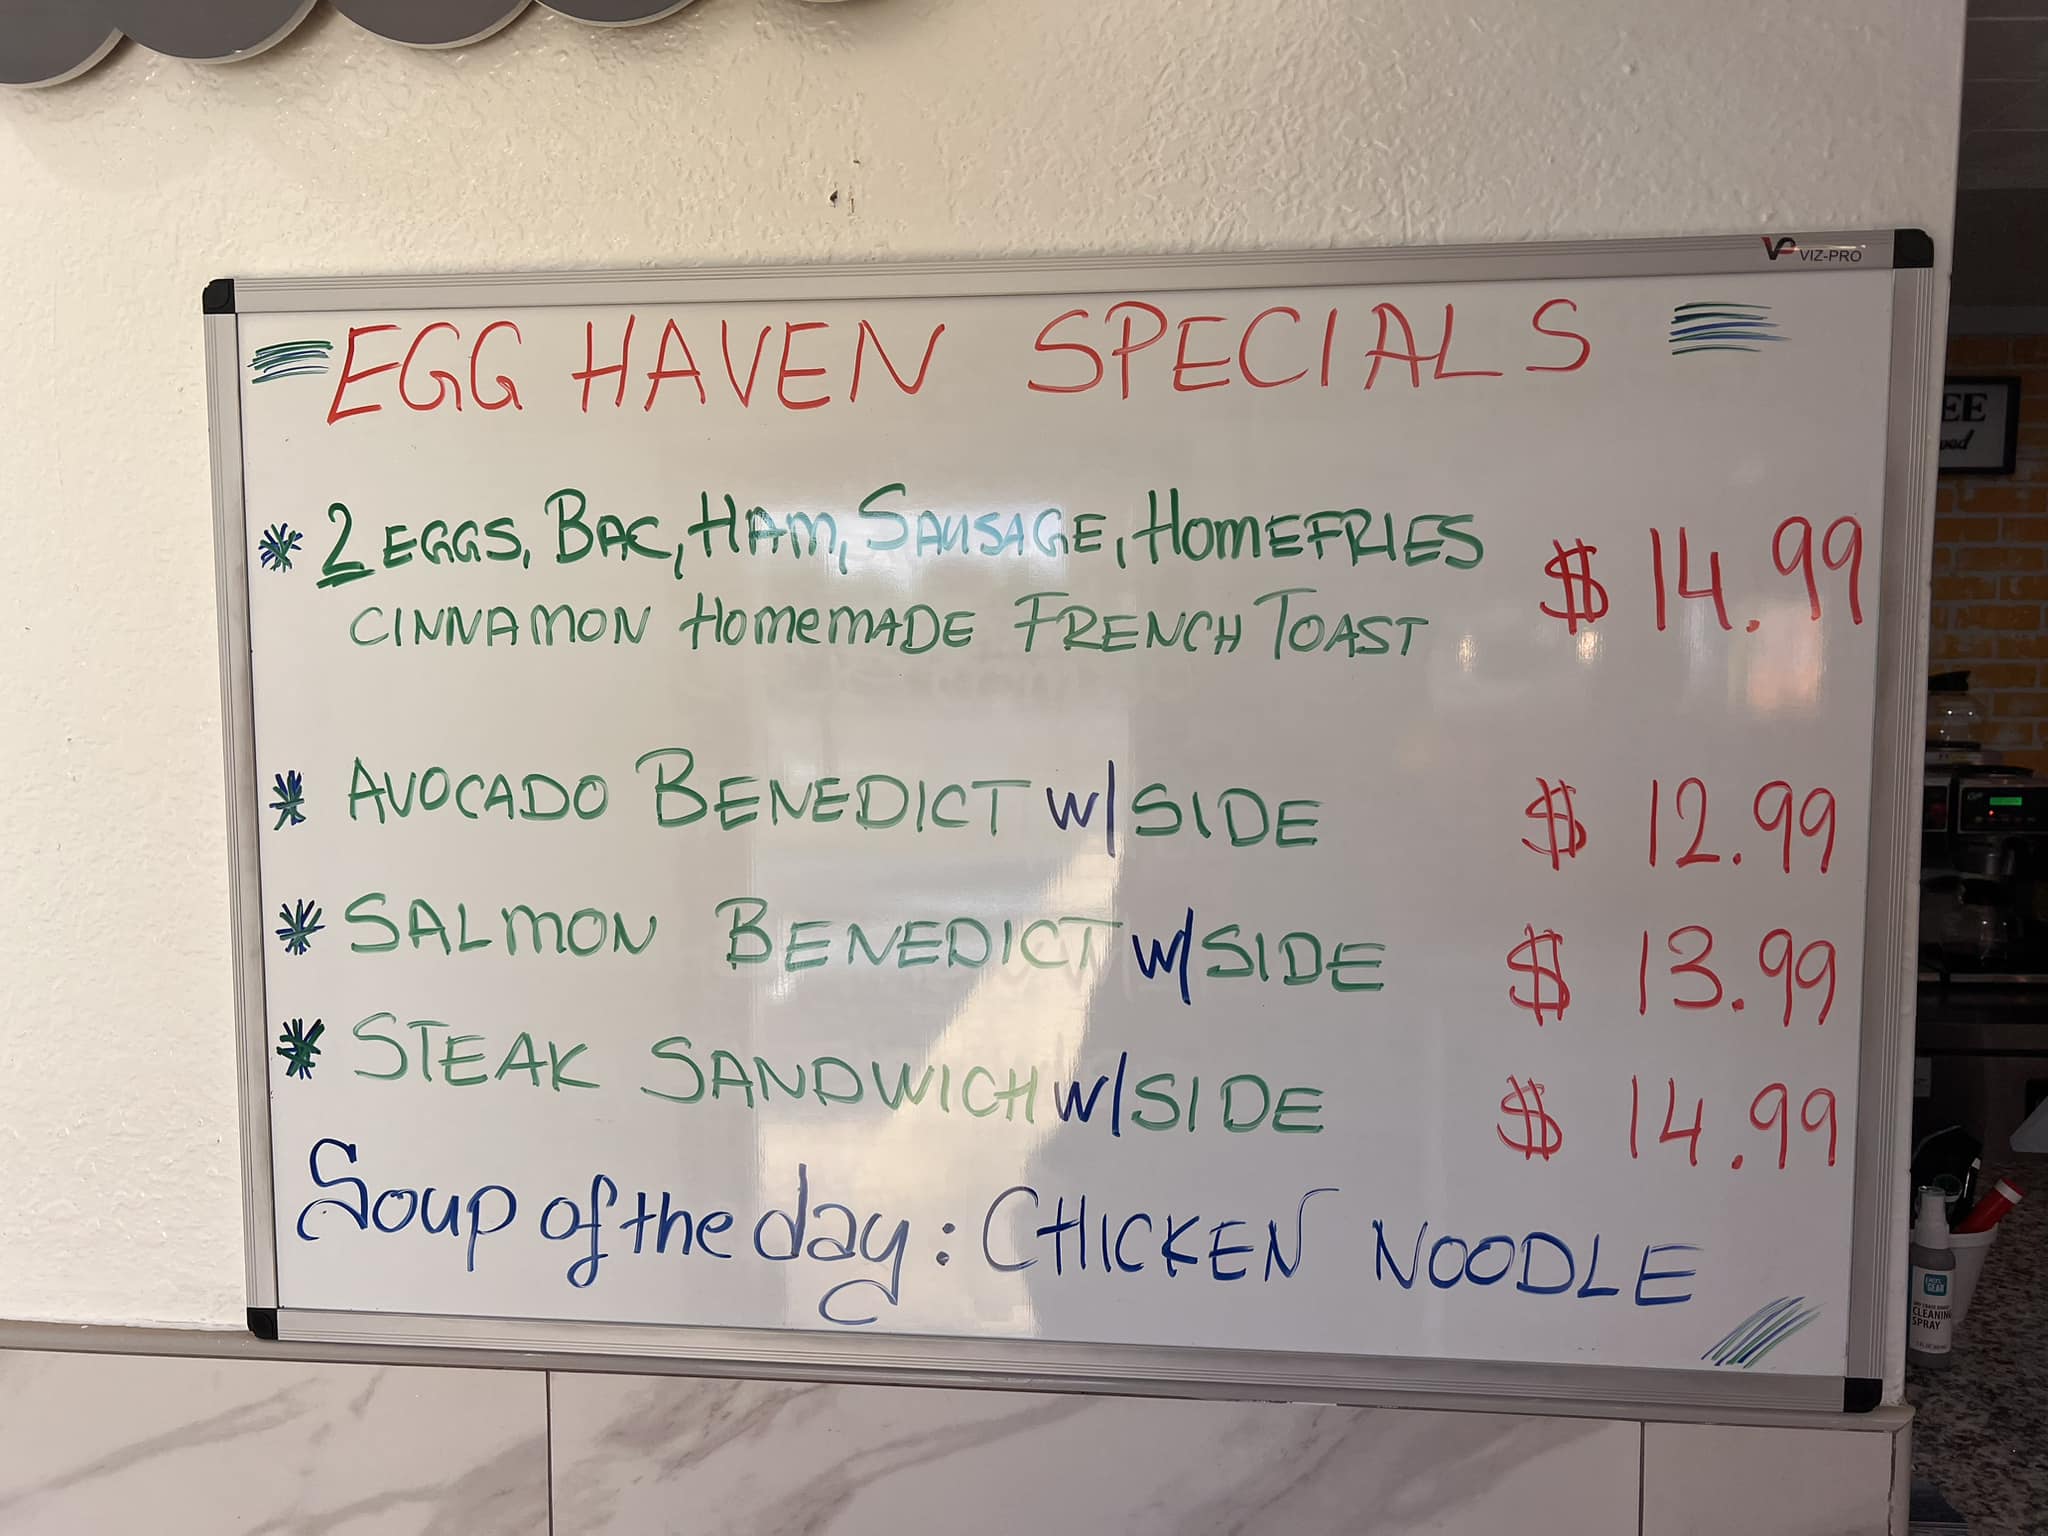 VP VIZ-PRO
EGG HAVEN SPECIALS
* 2 EGGS, BAC, HAM, SAUSAGE, HOMEFRIES
CINNAMON HOMEMADE FRENCH TOAST $ 14.99
* AVOCADO BENEDICT W/SIDE $ 12.99
* SALMON BENEDICT W/SIDE $ 13.99
* STEAK SANDWICH W/SIDE $ 14.99
Soup of the day: CHICKEN NOODLE
EE
CLEANING
SPRAY